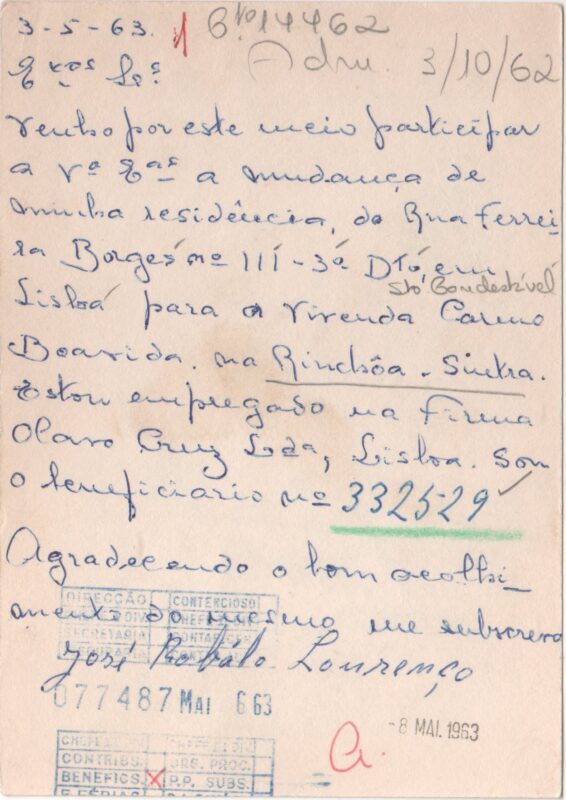 3-5-63. 14462
Adm. 3/10/62
Exmos Srs.
Venho por este meio participar
a Vª Exas a mudança de
minha residência, da Rua Ferrei-
ra Borges nº 111-3º Dtº, em
Stº Condestável
Lisboa para a Vivenda Carmo
Boavida, na Rinchôa - Sintra.
Estou empregado na Firma
Olavo Cruz Lda, Lisboa. Sou
o beneficiario nº 332529
Agradecendo o bom acolhi-
mento do mesmo me subscrevo
José Robálo Lourenço
DIRECÇÃO CONTENCIOSO
SECRETARIA
077487 MAI 6 63
-8 MAI. 1963
CONTRIBS. ORS. PROC.
BENEFICS. X P.P. SUBS.
E FÉRIAS